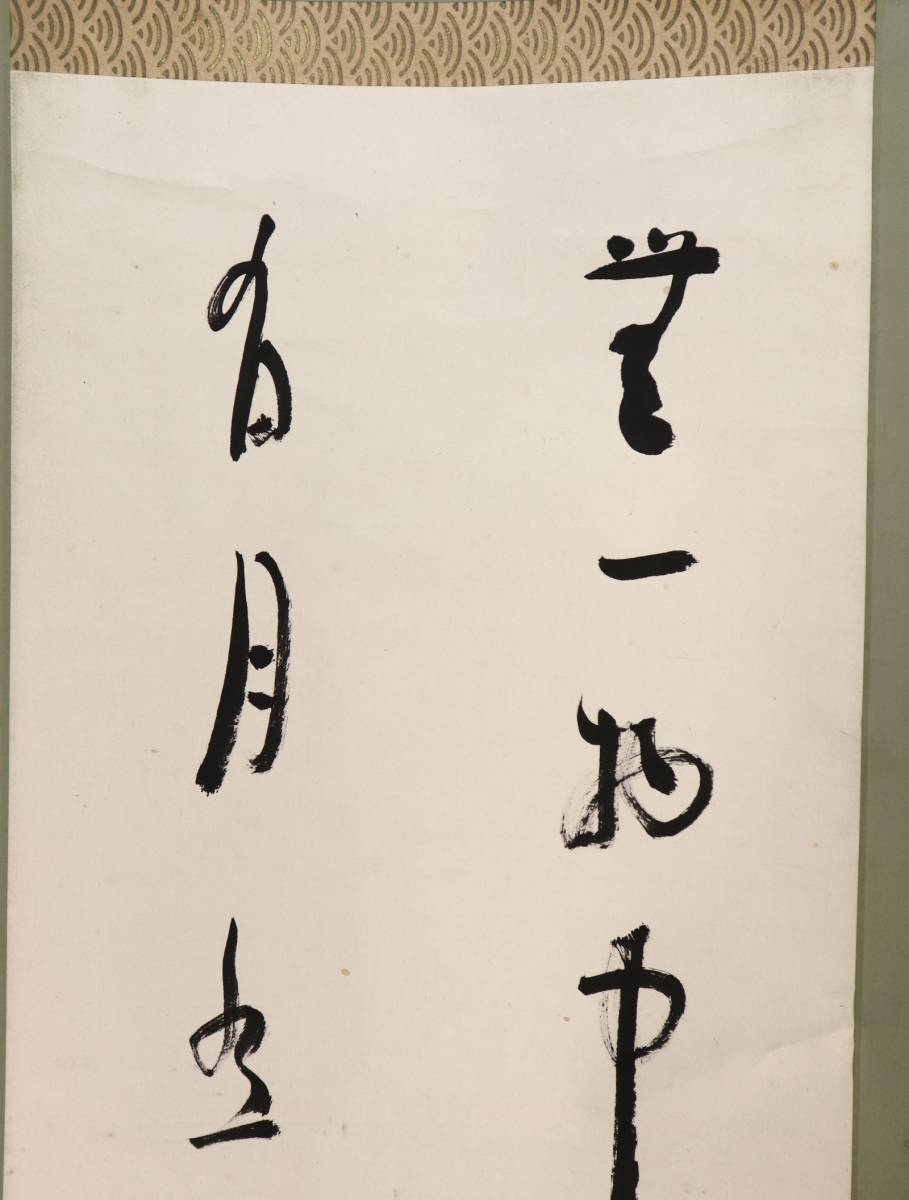 無一物中
有月有